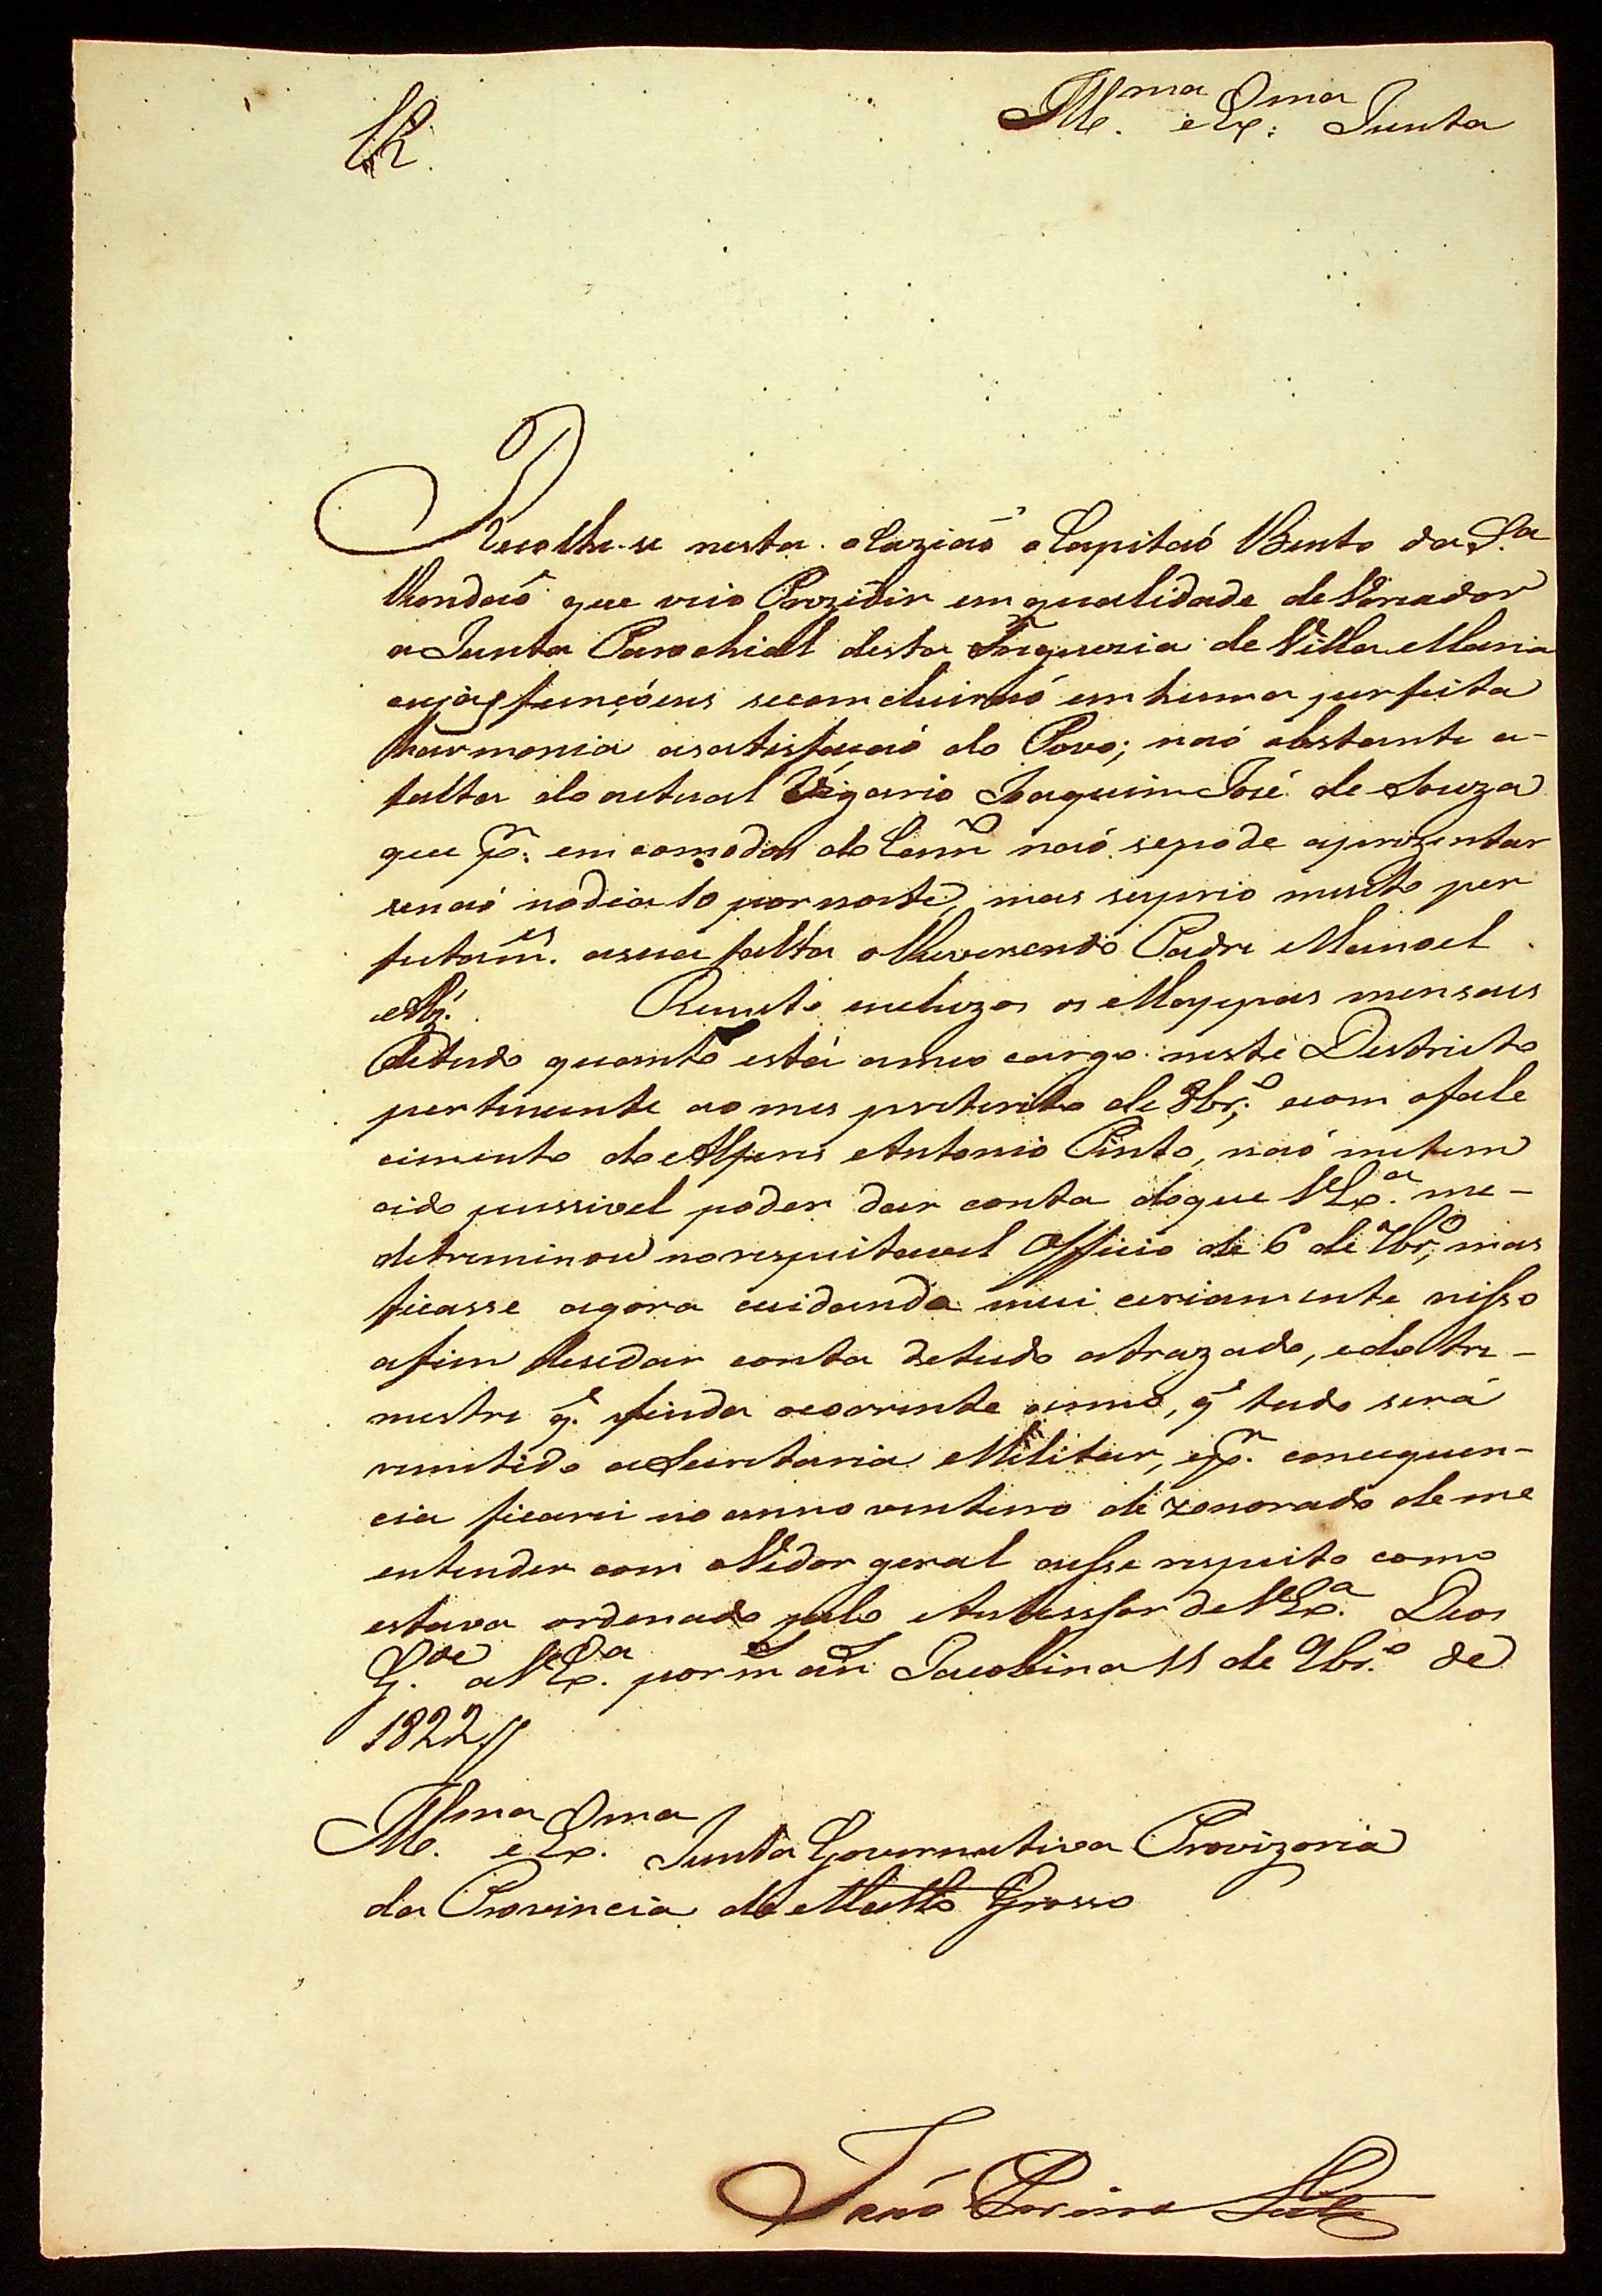 Ill.ma e Ex.ma Junta
Recolhe-se nesta ocaziaõ o Capitaõ Bento da S.a
Rondaõ que veio Prezidir em qualidade de Veriador
a Junta Parochial desta Freguezia de Villa Maria
cujas funçóens se comcluiraõ em huma perfeita
harmonia a satisfaçaõ do Povo; naõ obstante a-
falta do actual Vigario Joaquim José de Souza
que p.r emcomodos do Camo naõ se pode aprezentar
senaõ no dia 10 por noite, mas suprio muito per
feitam.e a sua falta o Reverendo Padre Manoel
Alz.' Remeto incluzos os Mappas mensais
de tudo quanto está a meo cargo neste Destricto
pertencente ao mes preterito de 8br.o, e com o fale
cimento do Alferes Antonio Pinto, naõ me tem
cido pussivel poder dar conta do que V Ex.a me-
detreminou no respeitavel Officio de 6 de 7br.o, mas
ficasse agora cuidando mui ceriamente nisso
afim de se dar conta de tudo atrazado, e do tri-
mestre q.e finda ocorrente anno, q.e tudo será
remetido a Secretaria Militar, e p.r conceguen-
cia ficarei no anno venturo dezonorado de me
entender com o Vedor geral a esse respeito como
estava ordenado pelo Antessor de V Ex.a Deos
G.de a V Ex.a por m.s an.s Jacobina 11 de 9br.o de
1822//
Ill.ma e Ex.ma Junta Governativa Provizoria
da Provincia de Matto Grosso
Joaõ Pereira Leite